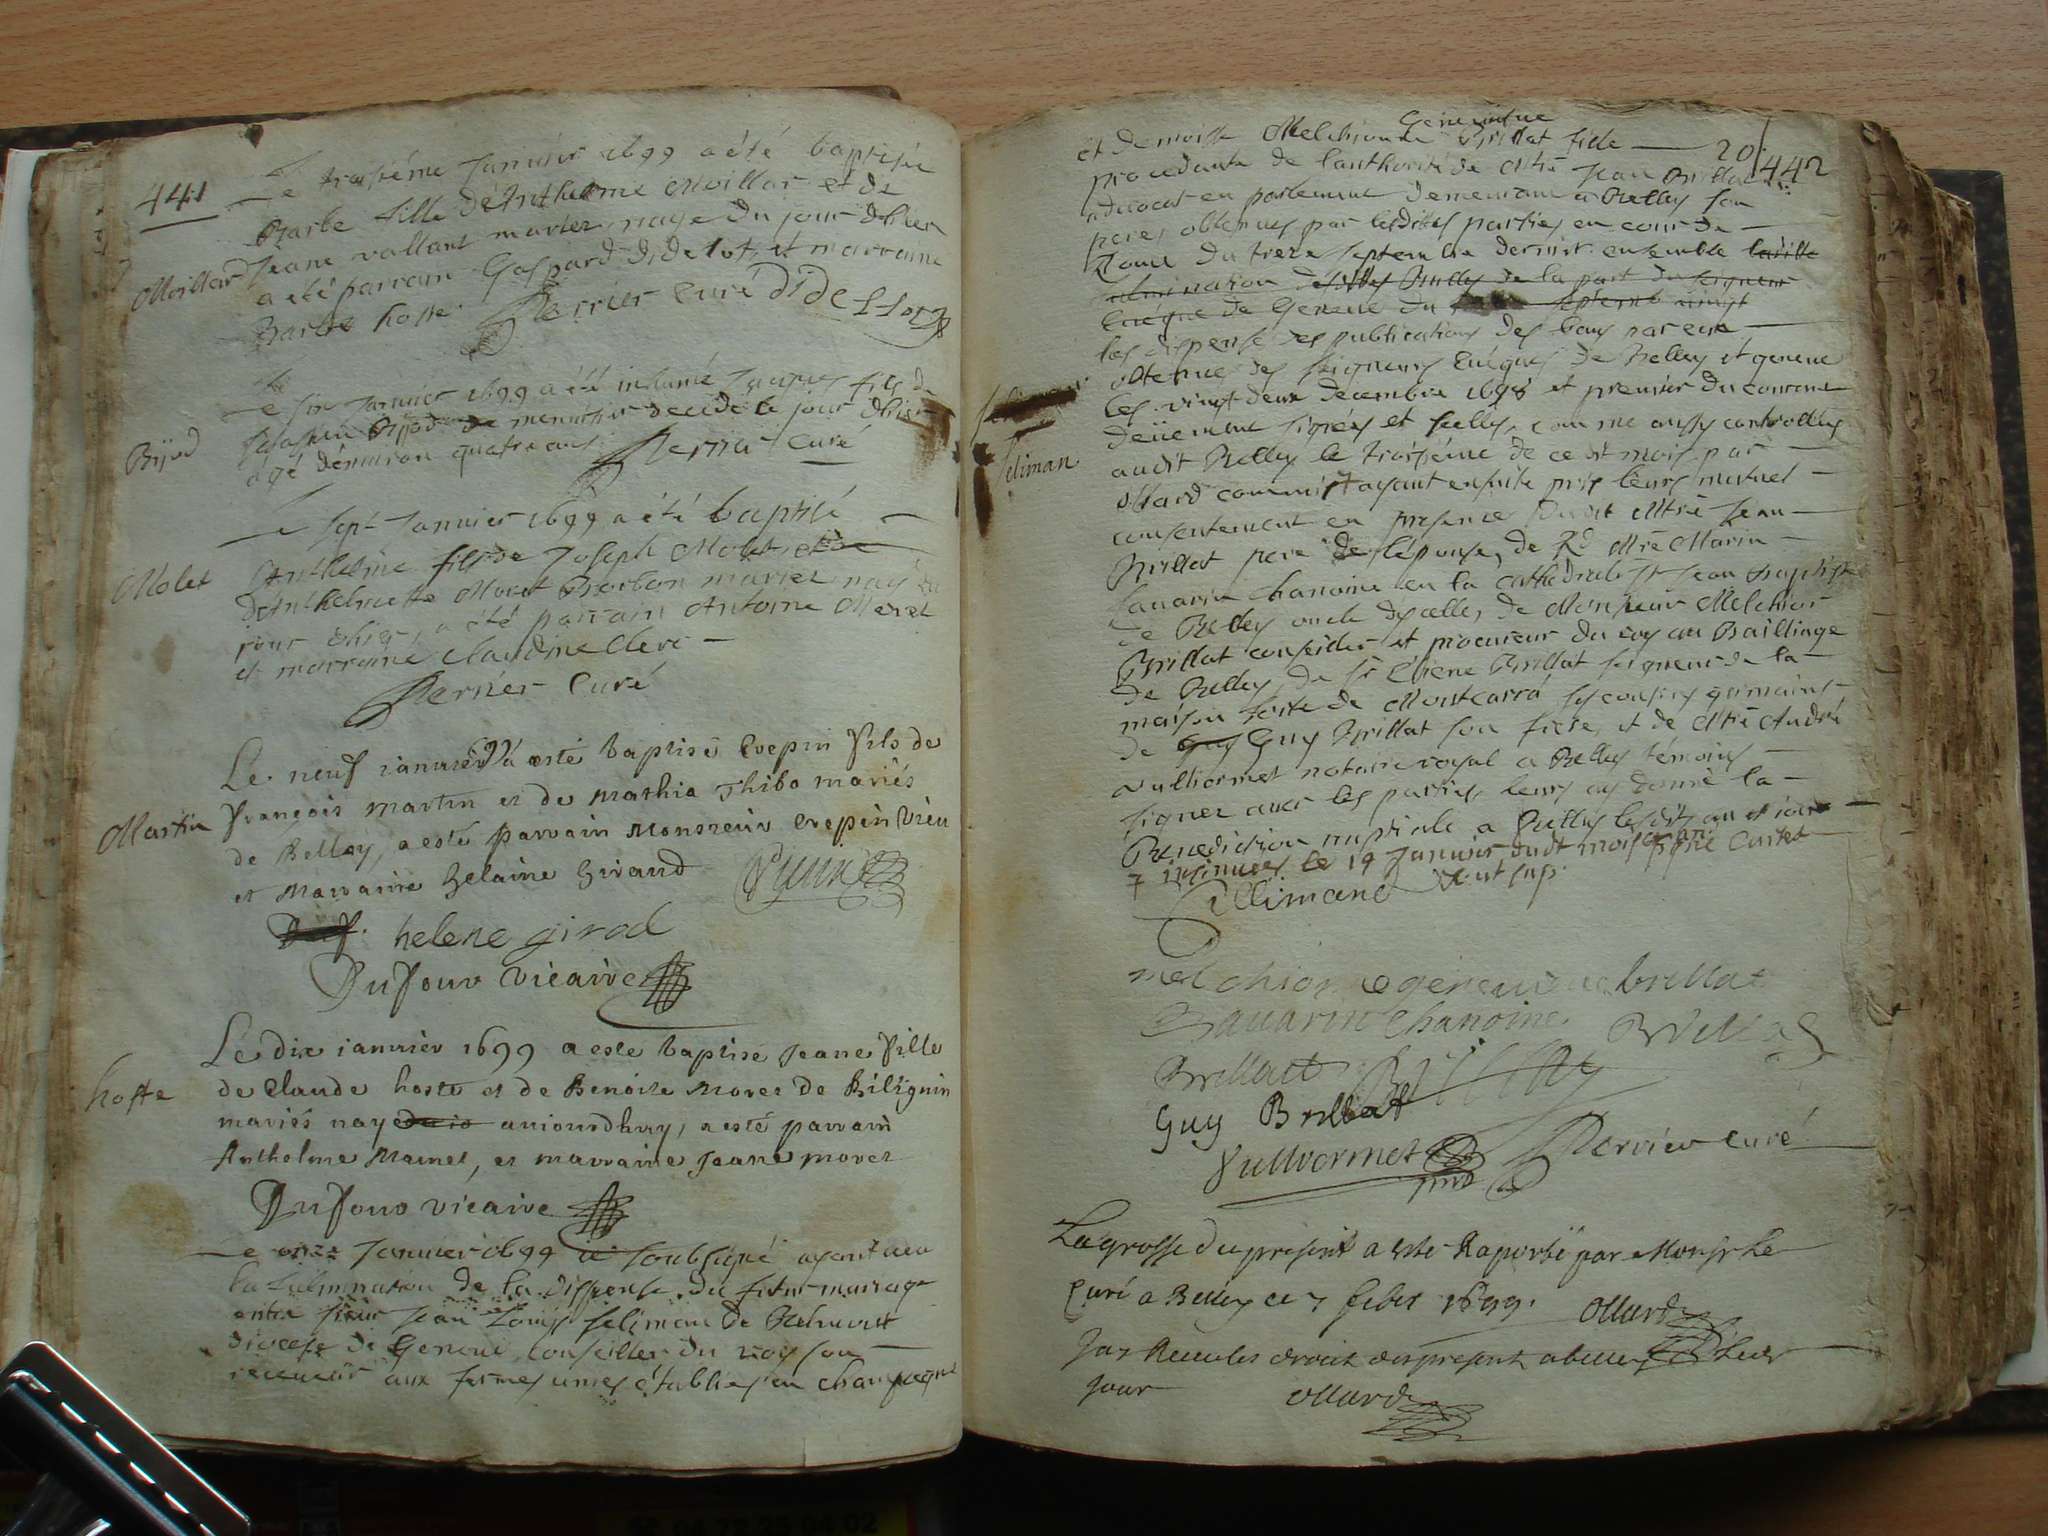 441
Le troisiéme Janvier 1699 a été baptisée
Barbe fille d'Anthelme Moillar et de
Jeane vallant mariez, naye du jour d'hier
Moillar
a été parrain Gaspard didelot, et marraine
Barbe hoste Perrier Curé Didellot
Le six Janvier 1699 a été inhumé Jaques fils de
Bijod menusier decedé le jour d'hier
Bijod
agé d'environ quatre ans Perrier Curé
Le sept Janvier 1699 a été baptisé
Anthelme fils de Joseph Molet, et de
Molet
d'Anthelmette Moret Borbon mariez, nay du
jour d'hier, a été parrain Antoine Meret
et marraine Claudine Clerc
Perrier Curé
Le neuf ianvier 99 a esté baptisé Crepin fils de
François Martin et de Mathia Thibo mariés
Martin
de Belley, a esté parrain Monsieur Crepin Vieu
et Marraine Helaine Giraud
helene girod
Dufour vicaire
Le dix ianvier 1699 a este baptisé Jeane fille
hoste
de Claude hoste et de Benoite Moret de Billignin
mariés naye auiourdhuy, a esté parrain
Anthelme Mamet, et marraine Jeane moret
Dufour vicaire
Le onze Janvier 1699 ie soubsigné ayant veu
la fulmination de la dispense du futur mariage
entre sieur Jean Louis Seliman de
diocese de Geneve, conseiller du roy son
receveur aux fermes unies établies en champagne
et demoiselle Melchionne Genevieve Brillat fille
20
442
procedante de l'authorité de Mtre Jean Brillat
advocat en parlement demeurant a Belley son
pere, obtenues par lesdites parties en cour de
Rome du treze septembre dernier ensemble ladite
fulmination desdites Bulles de la part du seigneur
Evêque de Geneve du septeme
les dispenses des publications des bans par eux
obtenues des seigneurs Evêques de Belley et geneve
les vingt deux decembre 1698 et premier du courant
deüement signées et scellés, comme aussy controllés
Seliman
audit Belley le troisiéme de ce dt mois par
Ollard commis 7 ayant ensuite pris leurs mutuel
consentement en presence dudit Mtre Jean
Brillat pere de l'epouse, de Rd Mre Marin
Savarin chanoine en la cathedrale St Jean Baptiste
de Belley oncle d'icelle, de Monsieur Melchior
Brillat conseiller et procureur du roy au Baillage
de Belley, de Sr Etiene Brillat seigneur de la
maison forte de Montcarra ses cousins germains
de Guy Guy Brillat son frere, et de Mtre André
Vulliormet notaire royal a Belley témoins
signez avec les parties, leurs ay donné la
Benediction nuptiale a Belley lesdits an et jour
7 insinuées le 19 Janvier dudt mois
Sillimand
melchionne genevieve brillat
Savarin Chanoine Brillat
Brillat
Guy Brillat
Vulliormet Perrier curé
La grosse du present a esté Raportée par Monsr le
Curé a Belley ce 7 febvr 1699. Ollard
Jay Receu les droit du present a belley
jour Ollard